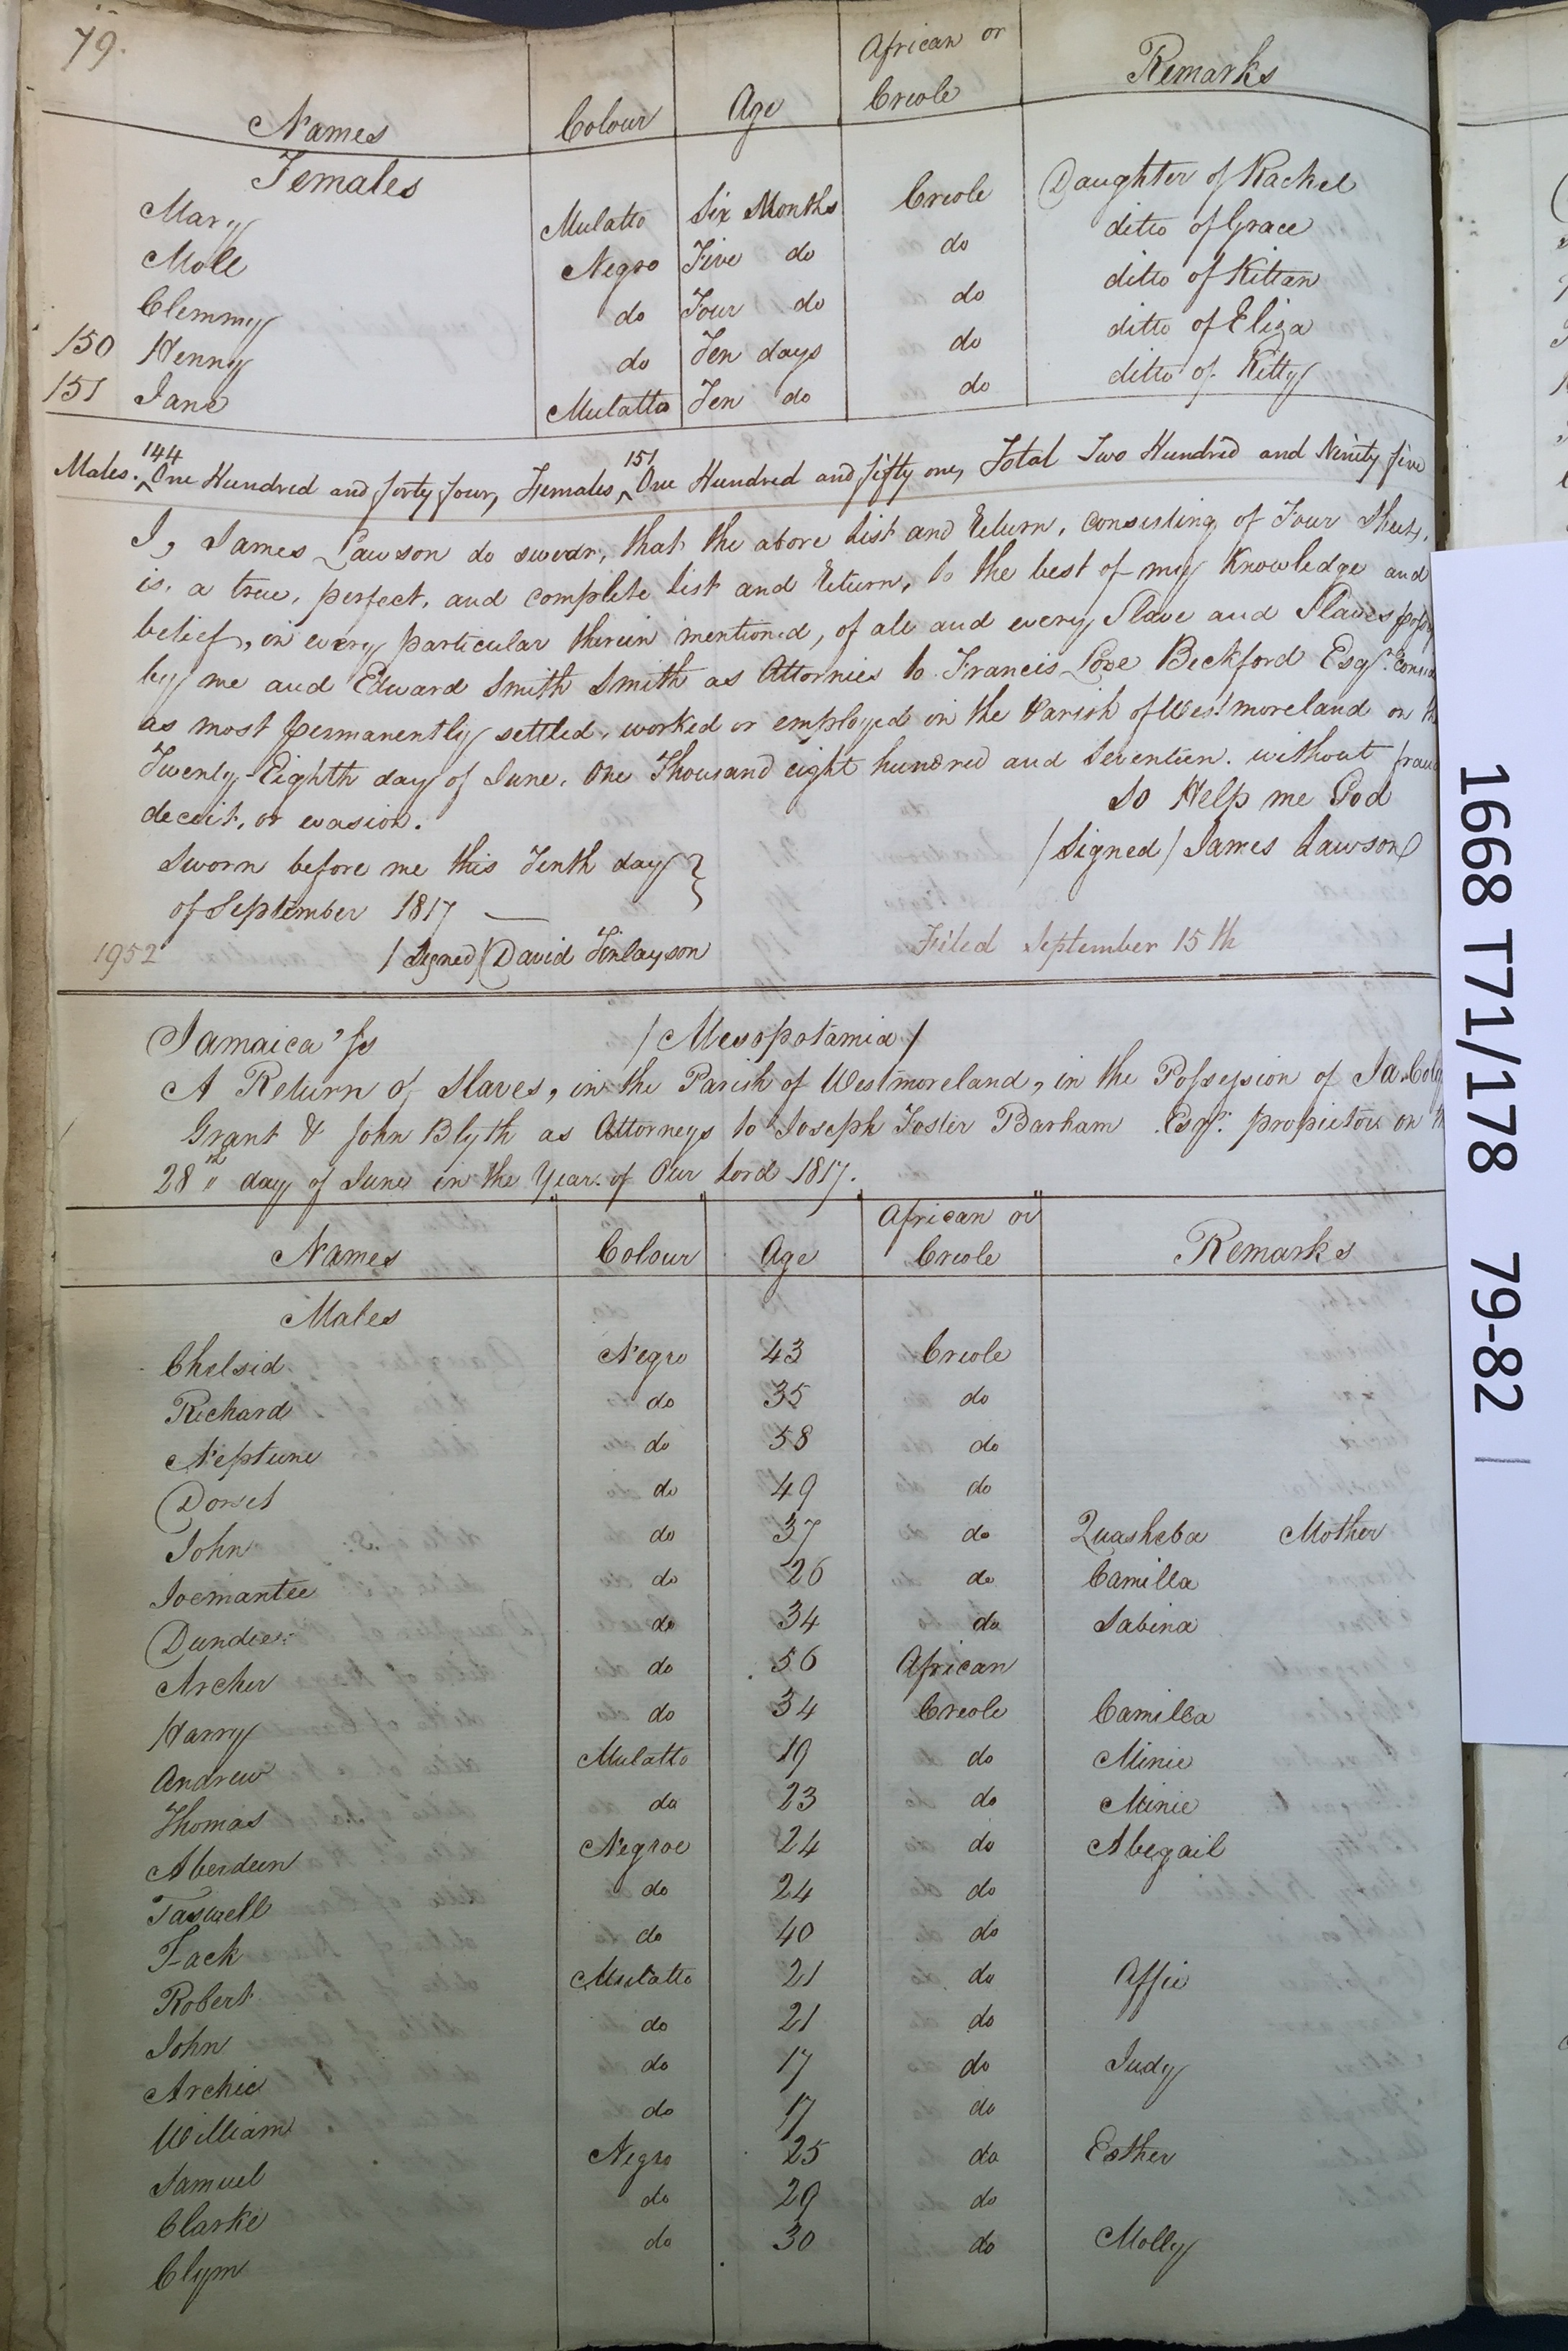 79.
Names Colour Age African or Creole Remarks
Females
Mary Mulatto Six Months Creole Daughter of Rachel
Moll Negro Five do do ditto of Grace
Clemmy do Four do do ditto of Kittan
150 Henny do Ten days do ditto of Eliza
151 Jane Mulatto Ten do do ditto of Kitty
Males. 144 One Hundred and forty four, Females, 151 One Hundred and fifty one, Total Two Hundred and Ninety five
I, James Lawson do swear, that the above List and Return, consisting of Four Sheets,
is, a true, perfect, and complete List and Return, to the best of my Knowledge and
belief, in every particular therein mentioned, of all and every Slave and Slaves
by me and Edward Smith Smith as Attornies to Francis Love Beckford Esqr.
as most permanently settled, worked or employed in the Parish of Westmoreland on
Twenty-Eighth day of June, One Thousand eight hundred and Seventeen. without
deceit, or evasion.
So Help me God
/Signed/ James Lawson
Sworn before me this Tenth day
of September 1817
1952 /Signed/ David Finlayson Filed September 15th
Jamaica Ss /Mesopotamia/
A Return of Slaves, in the Parish of Westmoreland, in the Possession of Ja.
Grant & John Blyth as Attorneys to Joseph Foster Barham Esqr. propietor on
28th day of June in the Year of Our Lord 1817.
Names Colour Age African or Creole Remarks
Males
Chelsid Negro 43 Creole
Richard do 35 do
Neptune do 58 do
Dorset do 49 do
John do 37 do Quasheba Mother
Joemantee do 26 do Camilla
Dundee do 34 do Sabina
Archer do 56 African
Harry do 34 Creole Camilla
Andrew Mulatto 19 do Minie
Thomas do 23 do Minie
Aberdeen Negroe 24 do Abegail
Taswell do 24 do
Jack do 40 do
Robert Mulatto 21 do Affie
John do 21 do
Archie do 17 do Judy
William do 17 do
Samuel Negro 25 do Esther
Clarke do 29 do
Clym do 30 do Molly
1668 T71/178 79-82